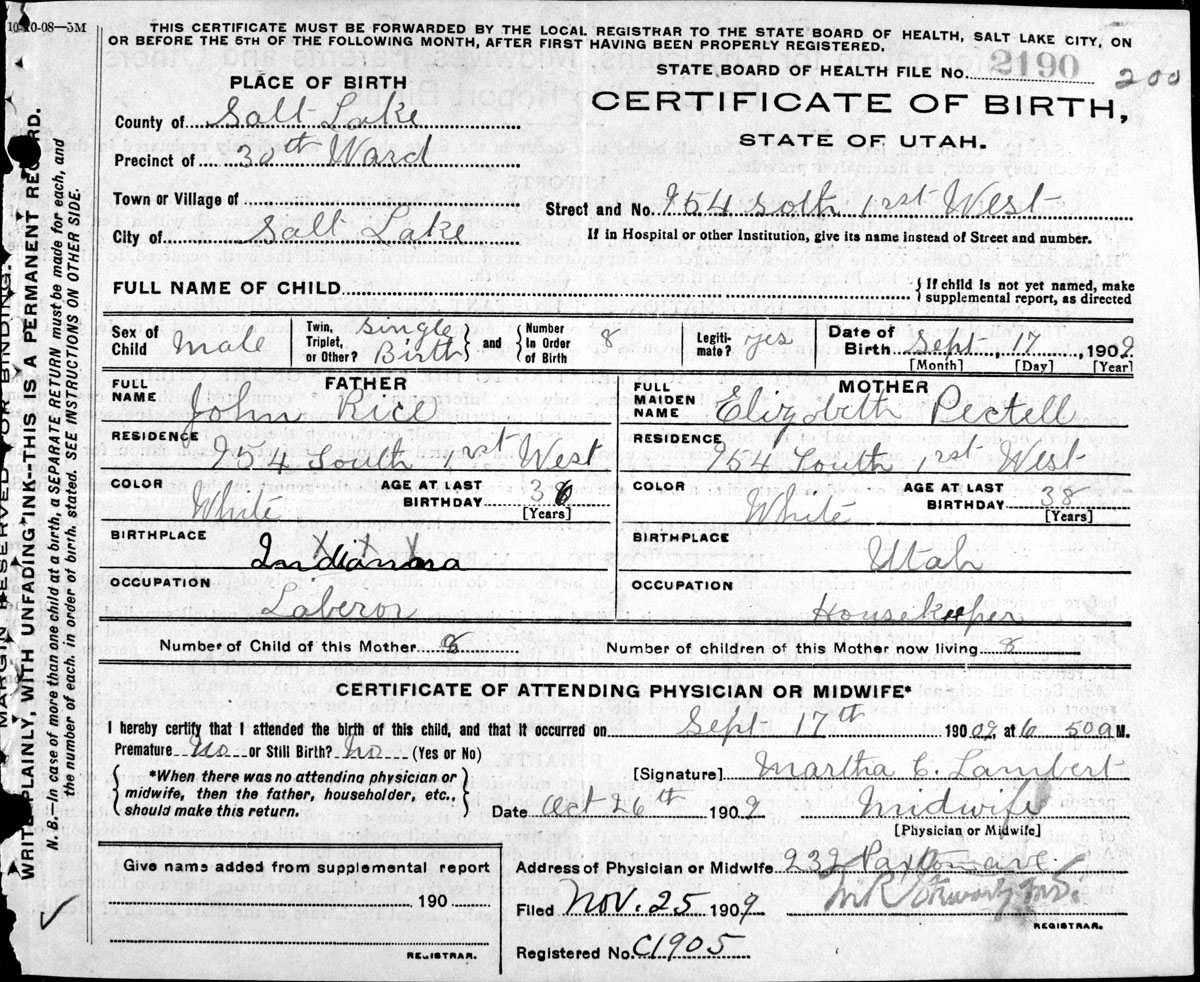 10-10-08—5M
THIS CERTIFICATE MUST BE FORWARDED BY THE LOCAL REGISTRAR TO THE STATE BOARD OF HEALTH, SALT LAKE CITY, ON
OR BEFORE THE 5TH OF THE FOLLOWING MONTH, AFTER FIRST HAVING BEEN PROPERLY REGISTERED.
STATE BOARD OF HEALTH FILE No. 2190 200
CERTIFICATE OF BIRTH,
STATE OF UTAH.
PLACE OF BIRTH
County of Salt Lake
Precinct of 30th Ward
Town or Village of
Street and No. 954 soth 1rst West
City of Salt Lake
If in Hospital or other Institution, give its name instead of Street and number.
FULL NAME OF CHILD
{ If child is not yet named, make
supplemental report, as directed
Sex of Child Male
Twin, Triplet, or Other? single Birth } and { Number In Order of Birth 8
Legiti- mate? yes
Date of Birth Sept, 17, 1909
[Month] [Day] [Year]
FATHER
FULL NAME John Rice
RESIDENCE 954 South 1rst West
COLOR White
AGE AT LAST BIRTHDAY 36
[Years]
BIRTHPLACE Indianna
OCCUPATION Laberor
MOTHER
FULL MAIDEN NAME Elizabeth Pectell
RESIDENCE 954 South 1rst West
COLOR White
AGE AT LAST BIRTHDAY 38
[Years]
BIRTHPLACE Utah
OCCUPATION Housekeeper
Number of Child of this Mother 8
Number of children of this Mother now living 8
CERTIFICATE OF ATTENDING PHYSICIAN OR MIDWIFE*
I hereby certify that I attended the birth of this child, and that it occurred on Sept 17th 1909 at 6 50 a M.
Premature No or Still Birth? No (Yes or No)
{ *When there was no attending physician or
midwife, then the father, householder, etc.,
should make this return. }
[Signature] Martha C. Lambert
Date Oct 26th 1909 Midwife
[Physician or Midwife]
Give name added from supplemental report
190
REGISTRAR.
Address of Physician or Midwife 232 Paxton ave
Filed Nov. 25 1909
REGISTRAR.
Registered No. C1905
MARGIN RESERVED FOR BINDING.
WRITE PLAINLY, WITH UNFADING INK--THIS IS A PERMANENT RECORD.
N. B.—In case of more than one child at a birth, a SEPARATE RETURN must be made for each, and
the number of each, in order of birth, stated. SEE INSTRUCTIONS ON OTHER SIDE.